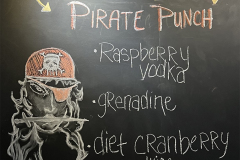 PIRATE PUNCH
• Raspberry
vodka
• grenadine
• diet cranberry